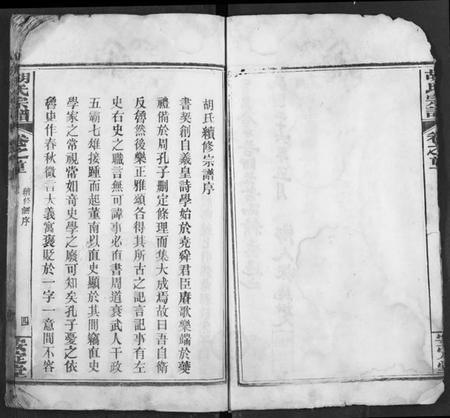 胡氏續修宗譜序
書契創自羲皇詩學始於堯舜君臣賡歌樂端於夔
禮備於周孔子刪定條理而集大成焉故曰吾自衛
反魯然後樂正雅頌各得其所古之記言記事有左
史右史之職言無可諱事必直書周道衰武人干政
五霸七雄接踵而起董南以直史顯於其間竊直史
學家之常視常如奇史學之廢可知矣孔子憂之依
魯史作春秋微言大義寓褒貶於一字一意間不容
胡氏宗譜
卷之首
續修譜序
四
胡氏宗譜
卷之首